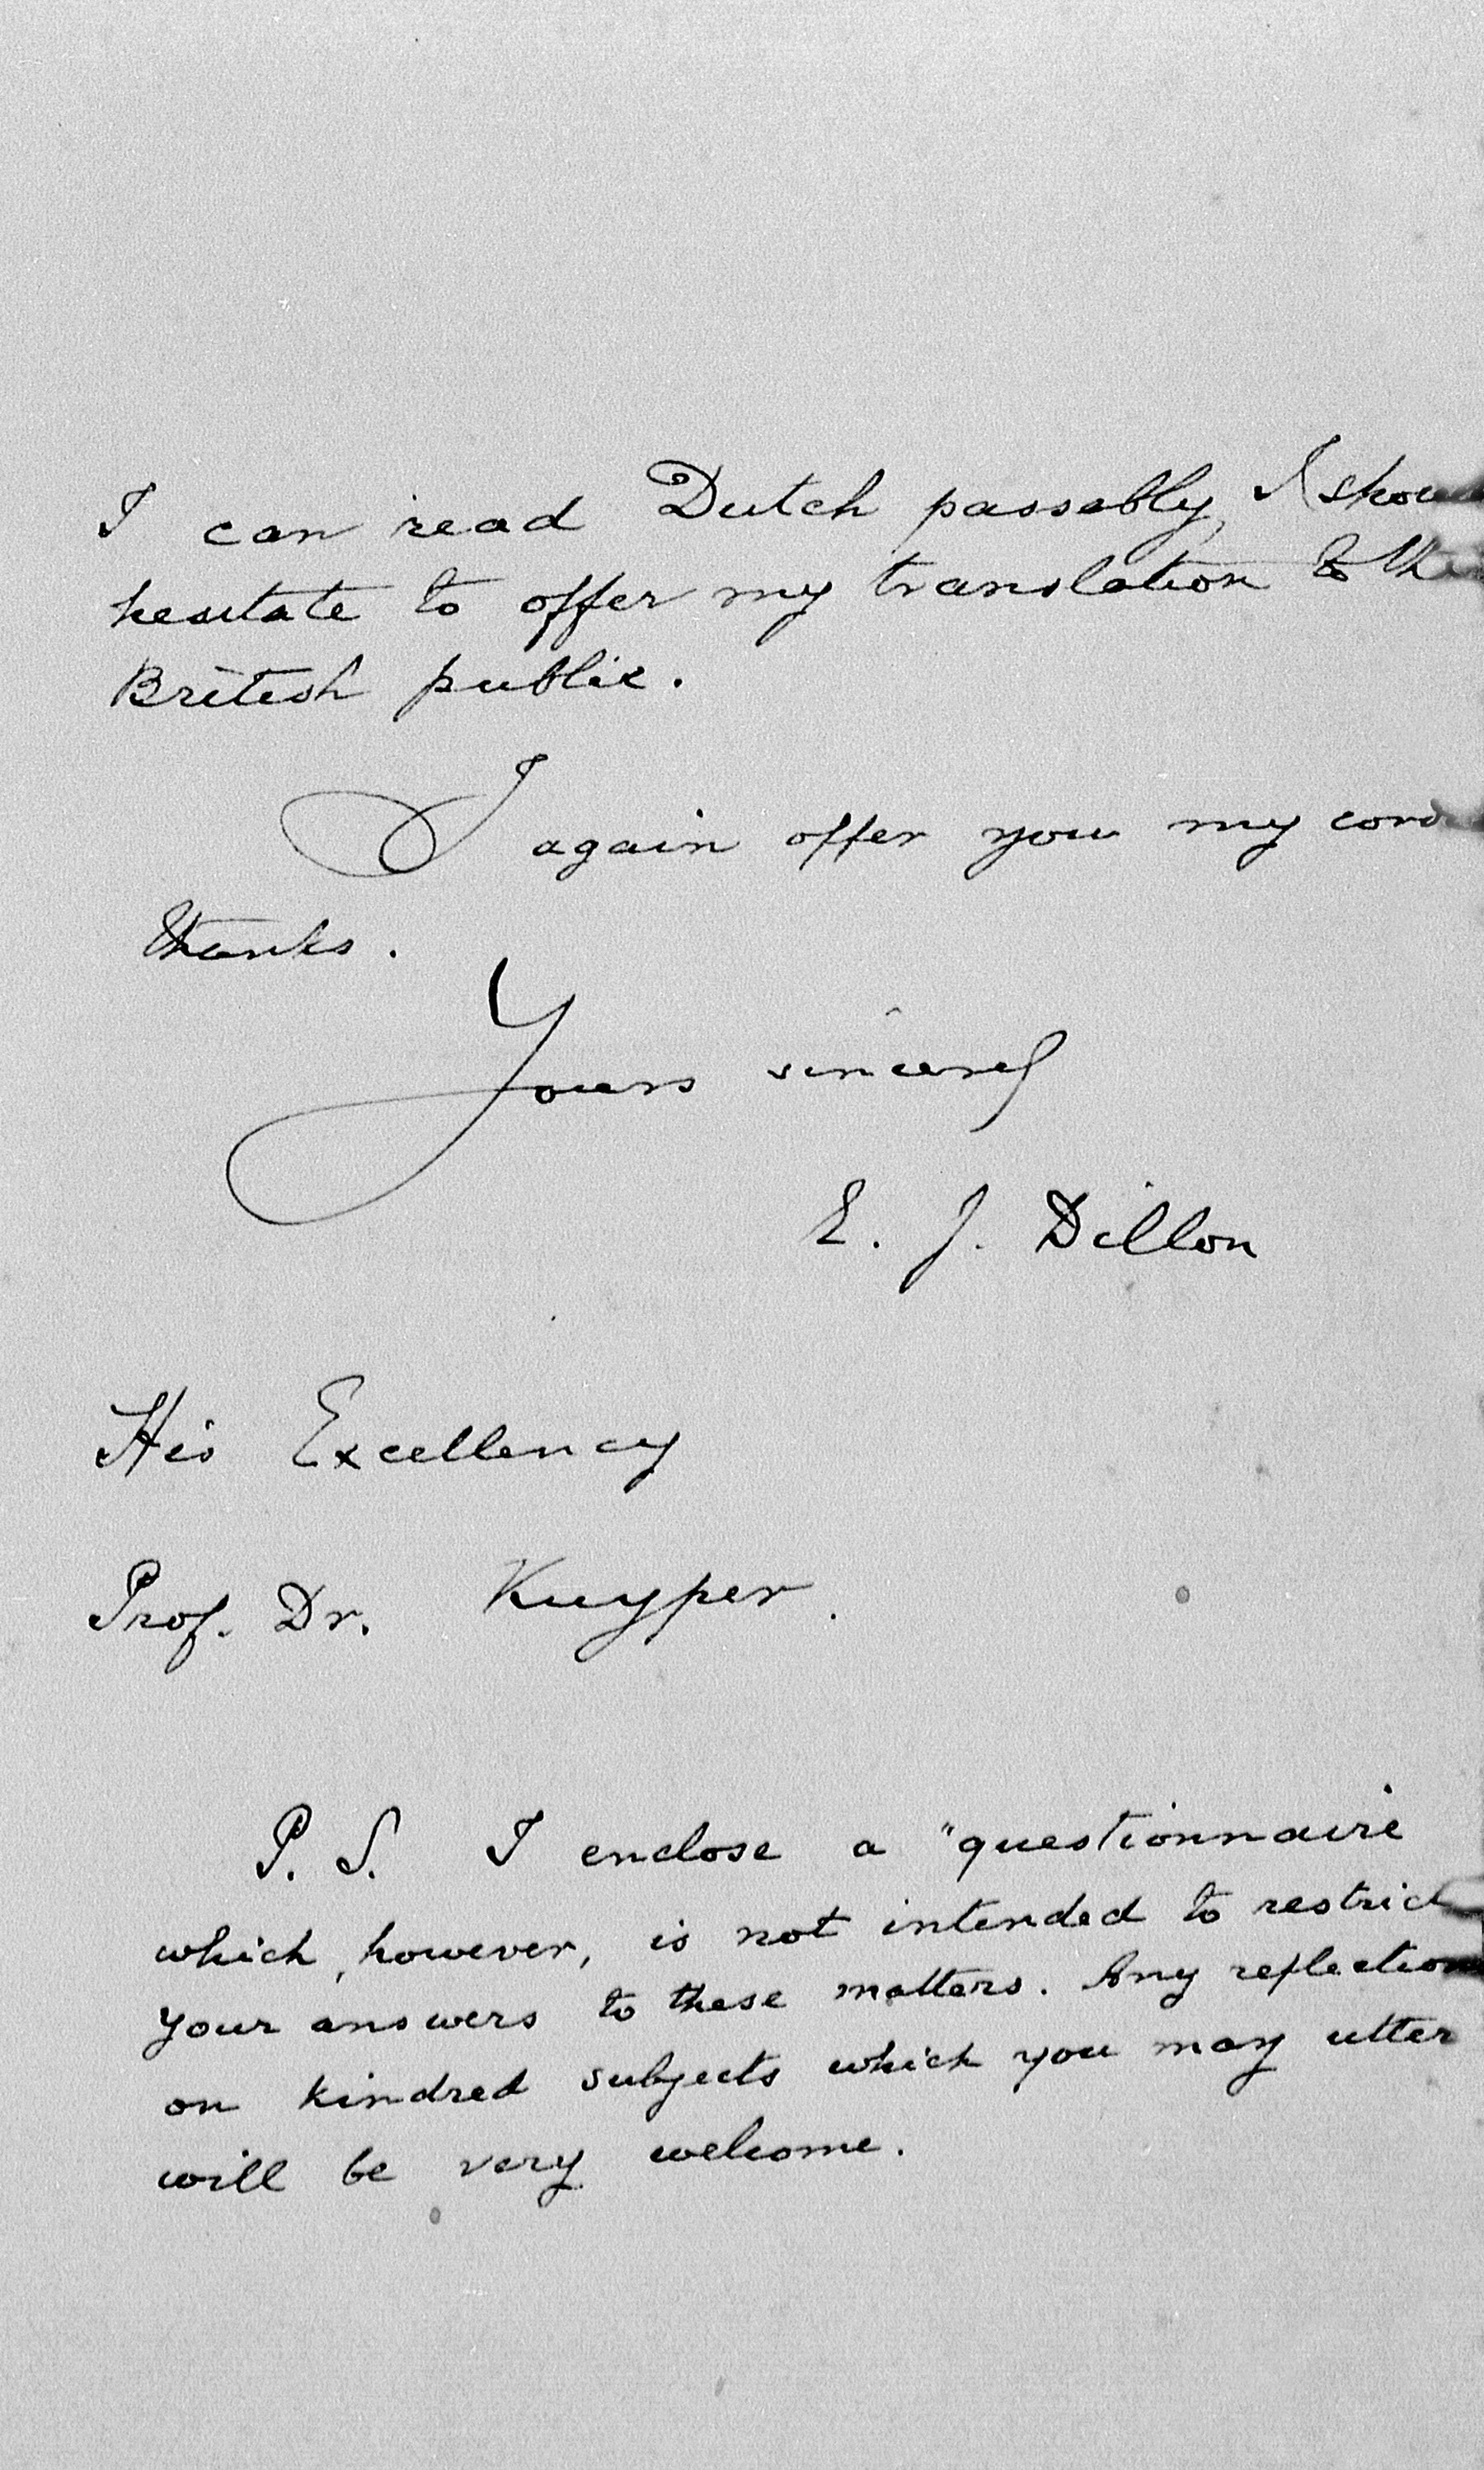 I can read Dutch passably, I shou
hesitate to offer my translation to the
British public.
I again offer you my cord
thanks.
Yours sincerely
E. J. Dillon
His Excellency
Prof. Dr. Kuyper.
P. S. I enclose a "questionnaire
which, however, is not intended to restrict
your answers to these matters. Any reflection
on kindred subjects which you may utter
will be very welcome.